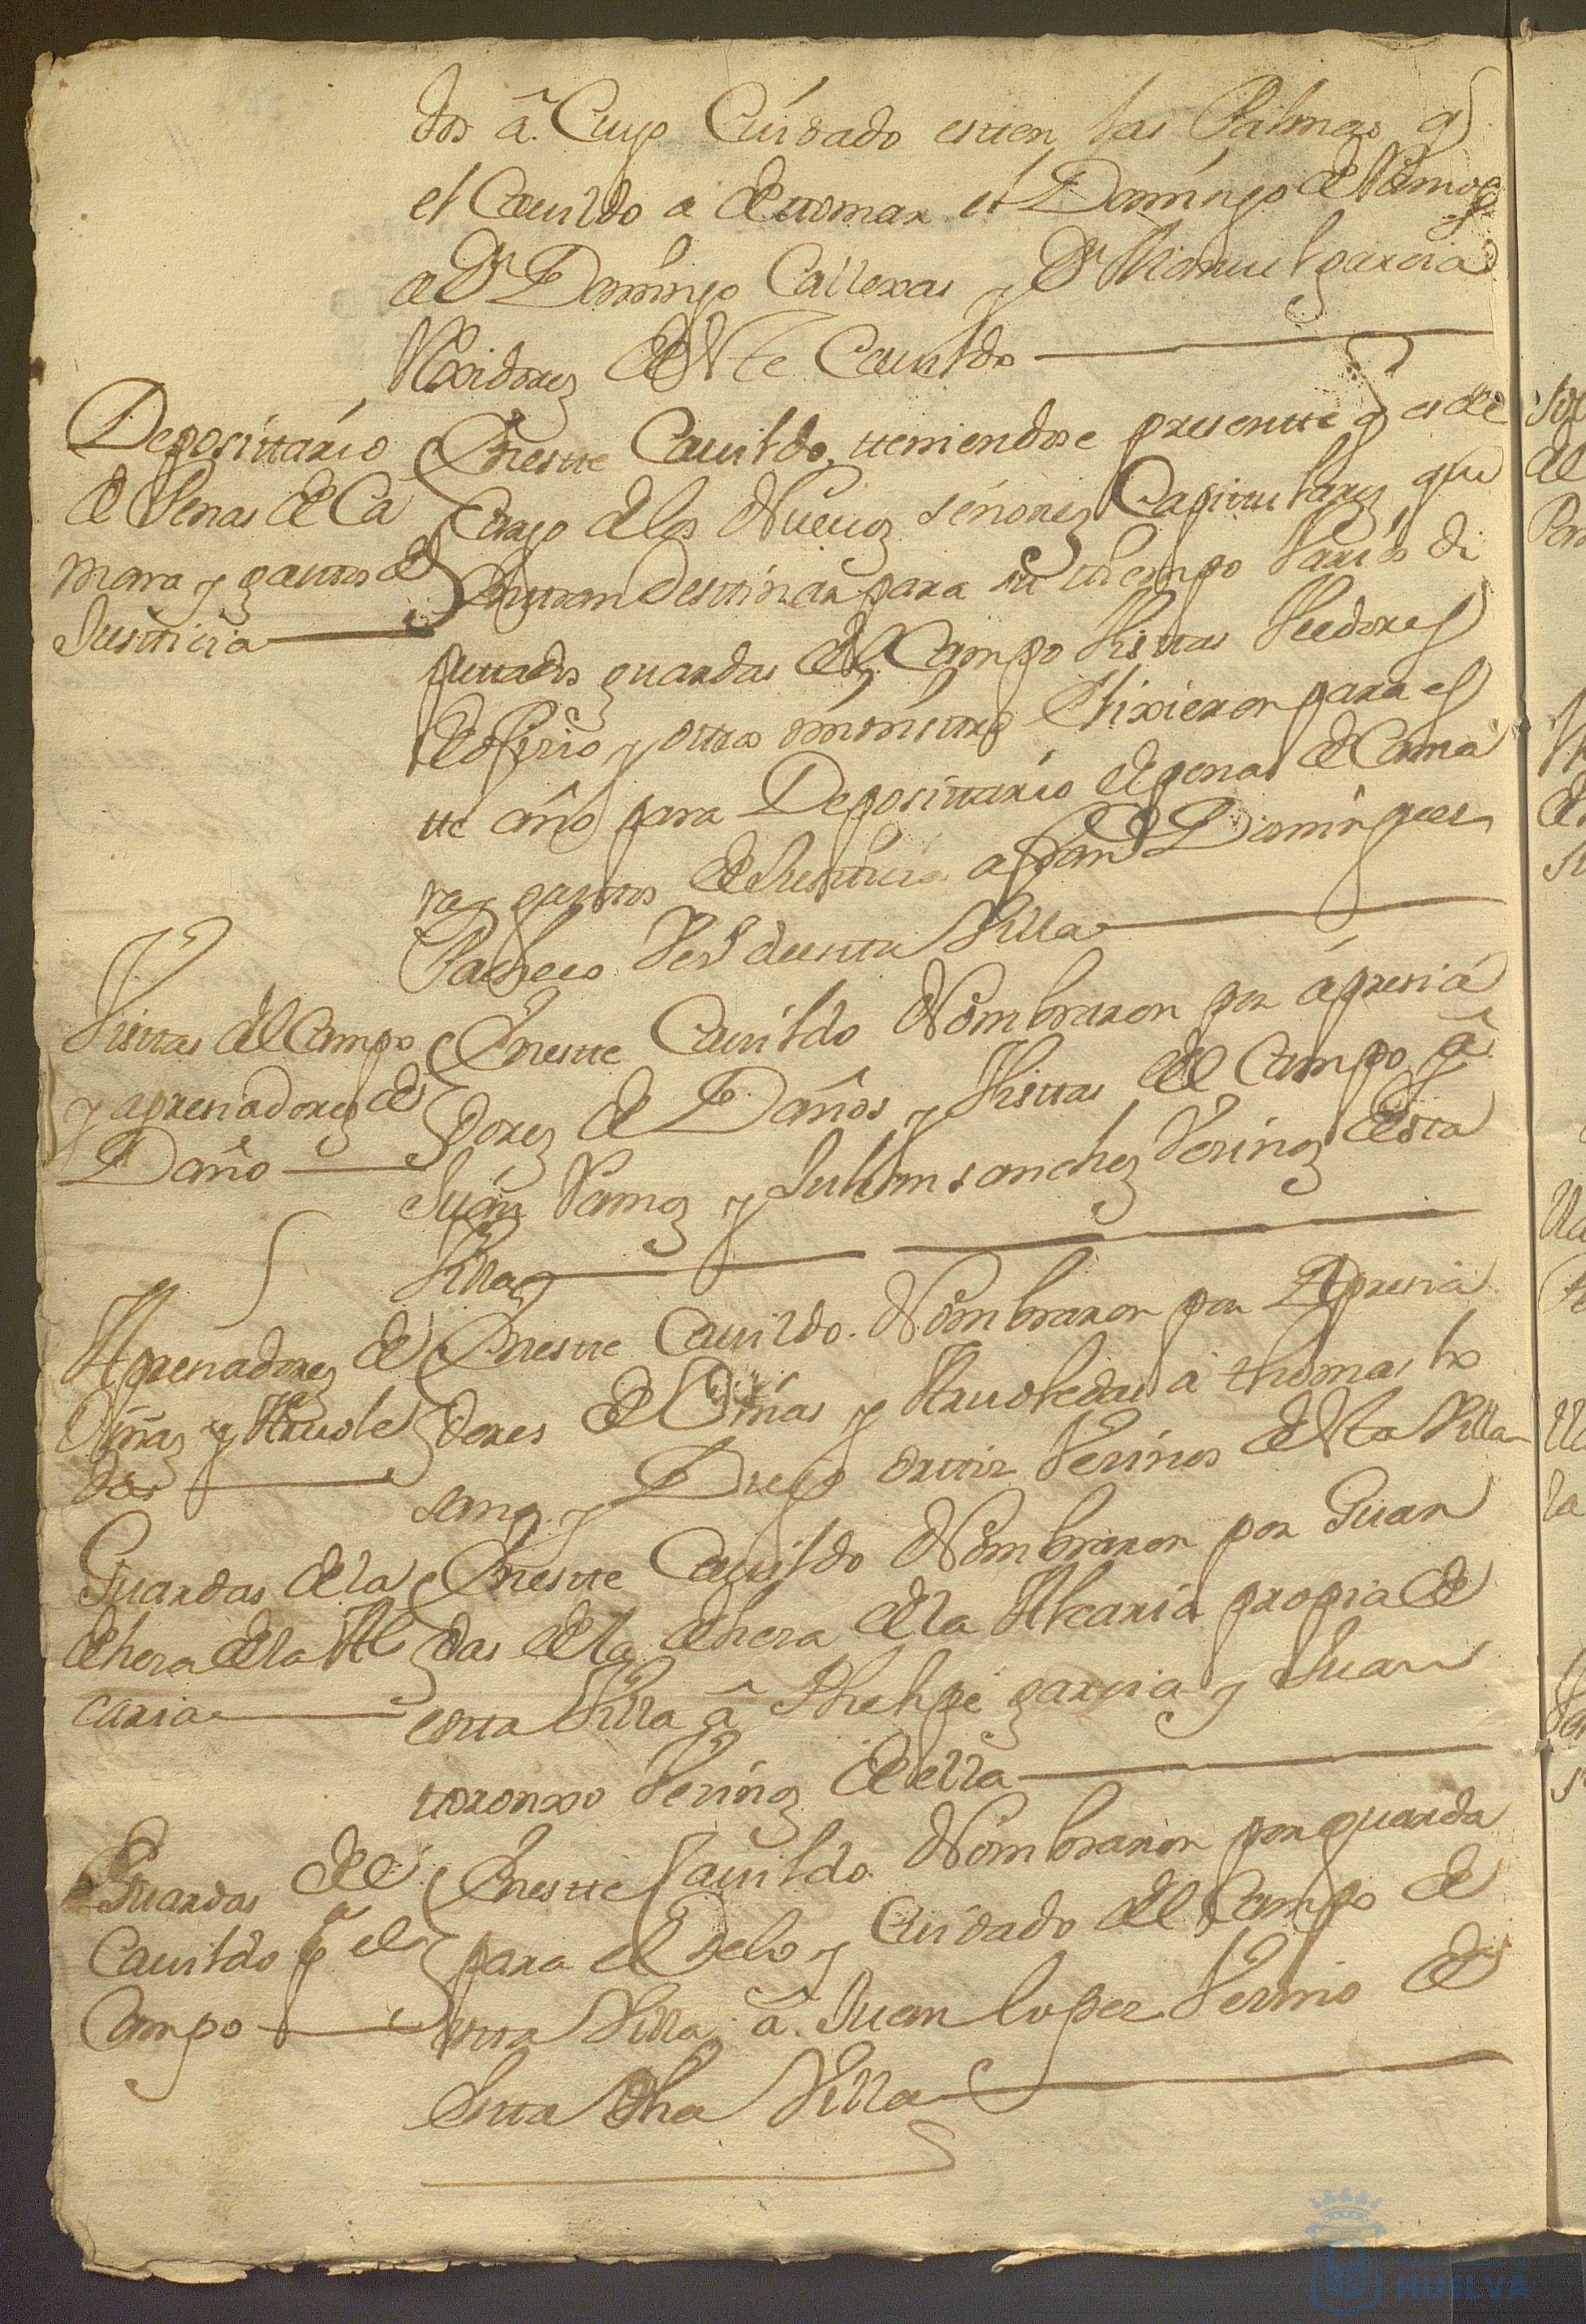 dos â Cuyo Cuidado esten las Palmas q
el Cauildo a de ttomar el Domingo de Ramos
a Dn Domingo Callexas y Dn Manuel garcia
Rexidores deste Cauildo
Deposittario
de Penas de Ca
mara y gasttos de
Justticia
En estte Cauildo, tteniendose presentte q es de
Cargo de los Nueuos señores Capittulares que
Enttran Desttinar para su ttiempo Varios di
puttados guardas del Campo Visttas Veedores
de ofizio y ottros Elixieron para es
tte año para Deposittario de penas de Cama
ra y gasttos de Justticia a Domingues
Pacheco Vesº de estta Villa
Visttas del Campo
y apresiadores de
Daño
En estte Cauildo Nombraron por apresia
dores de Daños y Visttas del Campo â
Juan Ramos y Julian sanches Vesinos desta
Villa
Apresiadores de
Viñas y Aruole
das
En estte Cauildo Nombraron por Apresia
dores de Viñas y Aruoledas a thomas lo
sano y Diego orttiz Vesinos desta Villa
Guardas de la
dehesa de la Al
caria
En estte Cauildo Nombraron por Guar
das de la dehesa de la Alcaria propia de
estta Villa â Phelipe garcia y Juan
ttoronxo Vesinos de ella
Guardas de
Cauildo pa el
Campo
En estte Cauildo Nombraron por guarda
para el selo y Cuidado del Campo de
estta Villa â Juan lopez Vesino de
Estta dha Villa
HUELVA